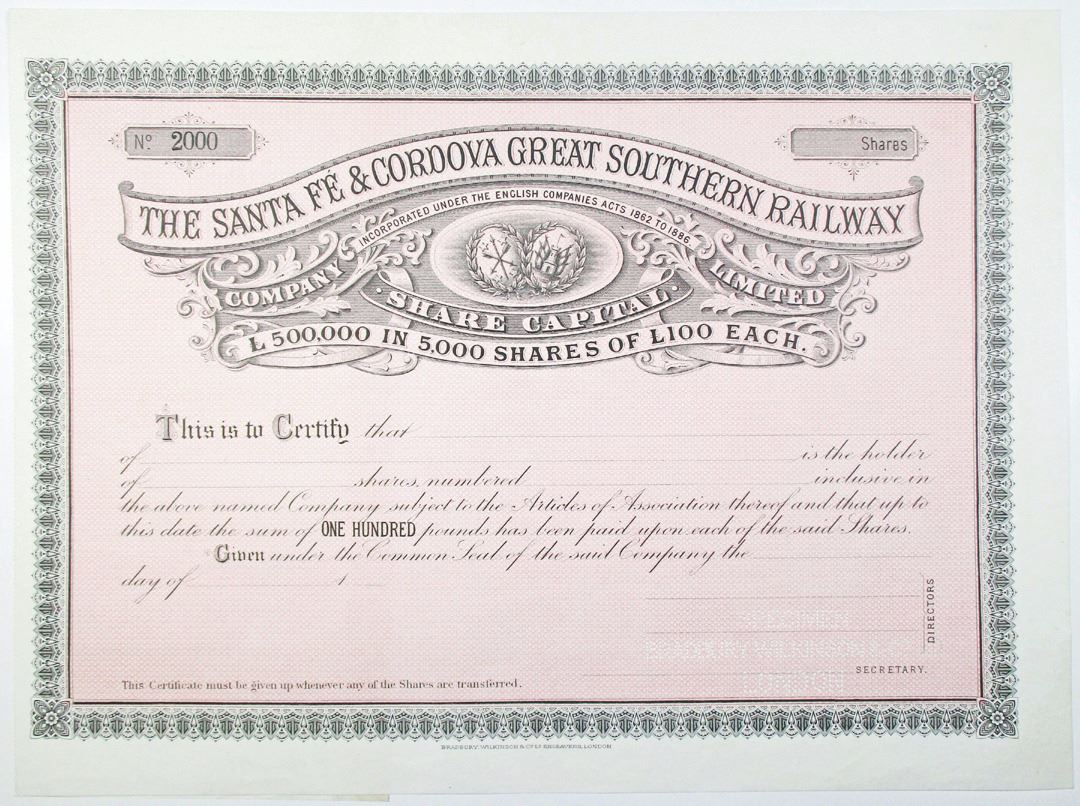 Nº 2000
Shares
THE SANTA FÉ & CORDOVA GREAT SOUTHERN RAILWAY
INCORPORATED UNDER THE ENGLISH COMPANIES ACTS 1862 TO 1886.
COMPANY LIMITED
· SHARE CAPITAL ·
£500,000 IN 5,000 SHARES OF £100 EACH.
This is to Certify that
of is the holder
of shares, numbered inclusive in
the above named Company subject to the Articles of Association thereof and that up to
this date the sum of ONE HUNDRED pounds has been paid upon each of the said Shares.
Given under the Common Seal of the said Company the
day of 1
DIRECTORS
SECRETARY.
This Certificate must be given up whenever any of the Shares are transferred.
BRADBURY, WILKINSON & Cº Lº ENGRAVERS, LONDON